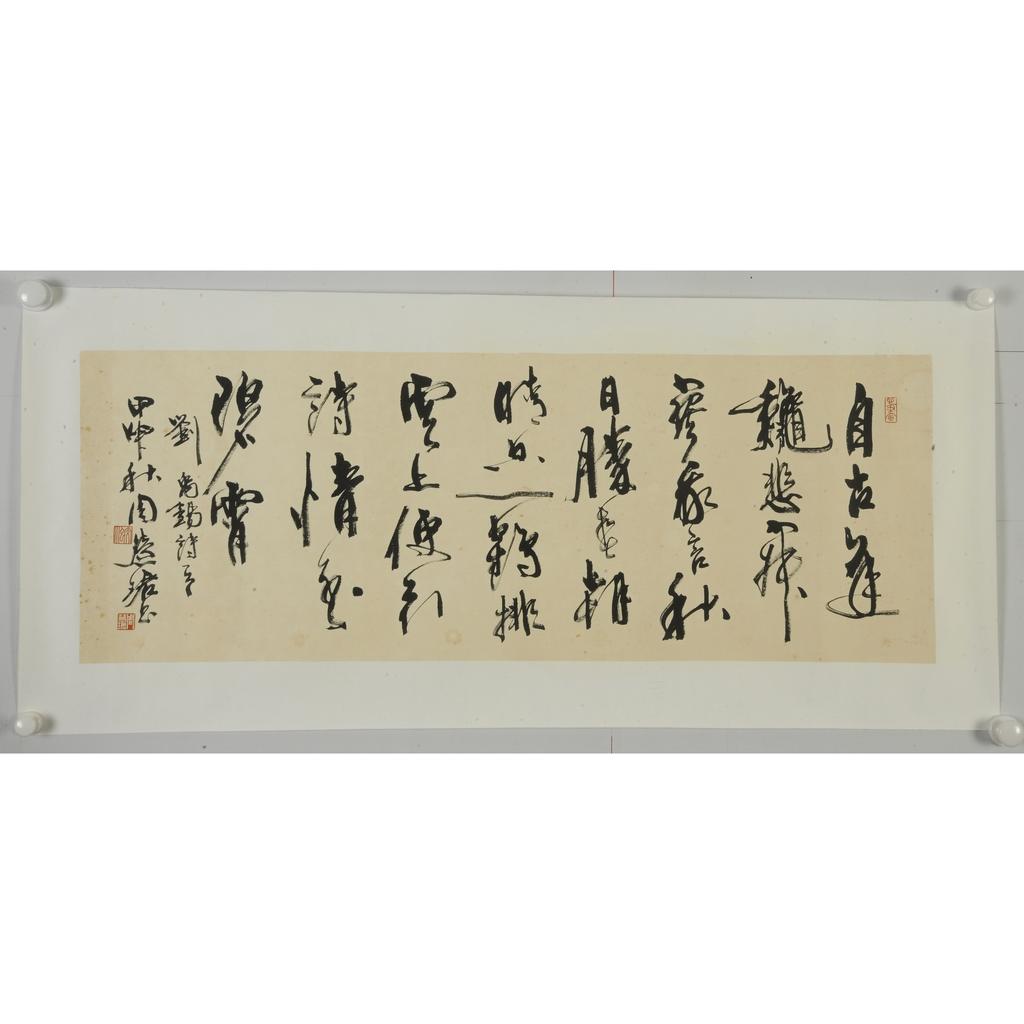 自古逢
龝悲寂
寥我言秋
日勝春朝
晴空一鶴排
雲上便引
詩情到
碧霄
劉禹錫詩
甲申秋周慧珺書